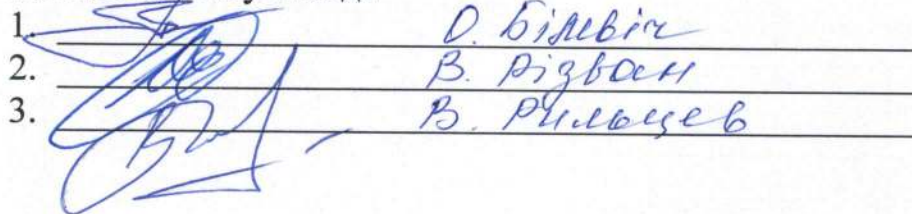 1. О. Білевіч
2. В. Різван
3. В. Рильцев